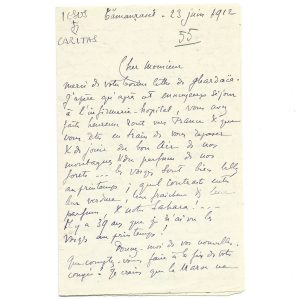 IESUS
CARITAS
Tamanrasset - 23 juin 1912
55
Cher Monsieur
merci de votre bonne lettre de Ghardaïa.
J'espère qu'après cet ennuyeux séjour
à l'infirmerie-hôpital, vous avez
fait heureuse route vers France & que
vous êtes en train de vous reposer
& de jouir du bon air de nos
montagnes & du parfum de nos
forêts... les Vosges sont bien belles
au printemps ; quel contraste entre
leur verdure, leur fraîcheur & leur
parfum, & notre Sahara !...
Il y a 39 ans que je n'ai vu les
Vosges au printemps !
Donnez-moi de vos nouvelles.
Que comptez-vous faire à la fin de votre
congé ? Je crains que le Maroc ne